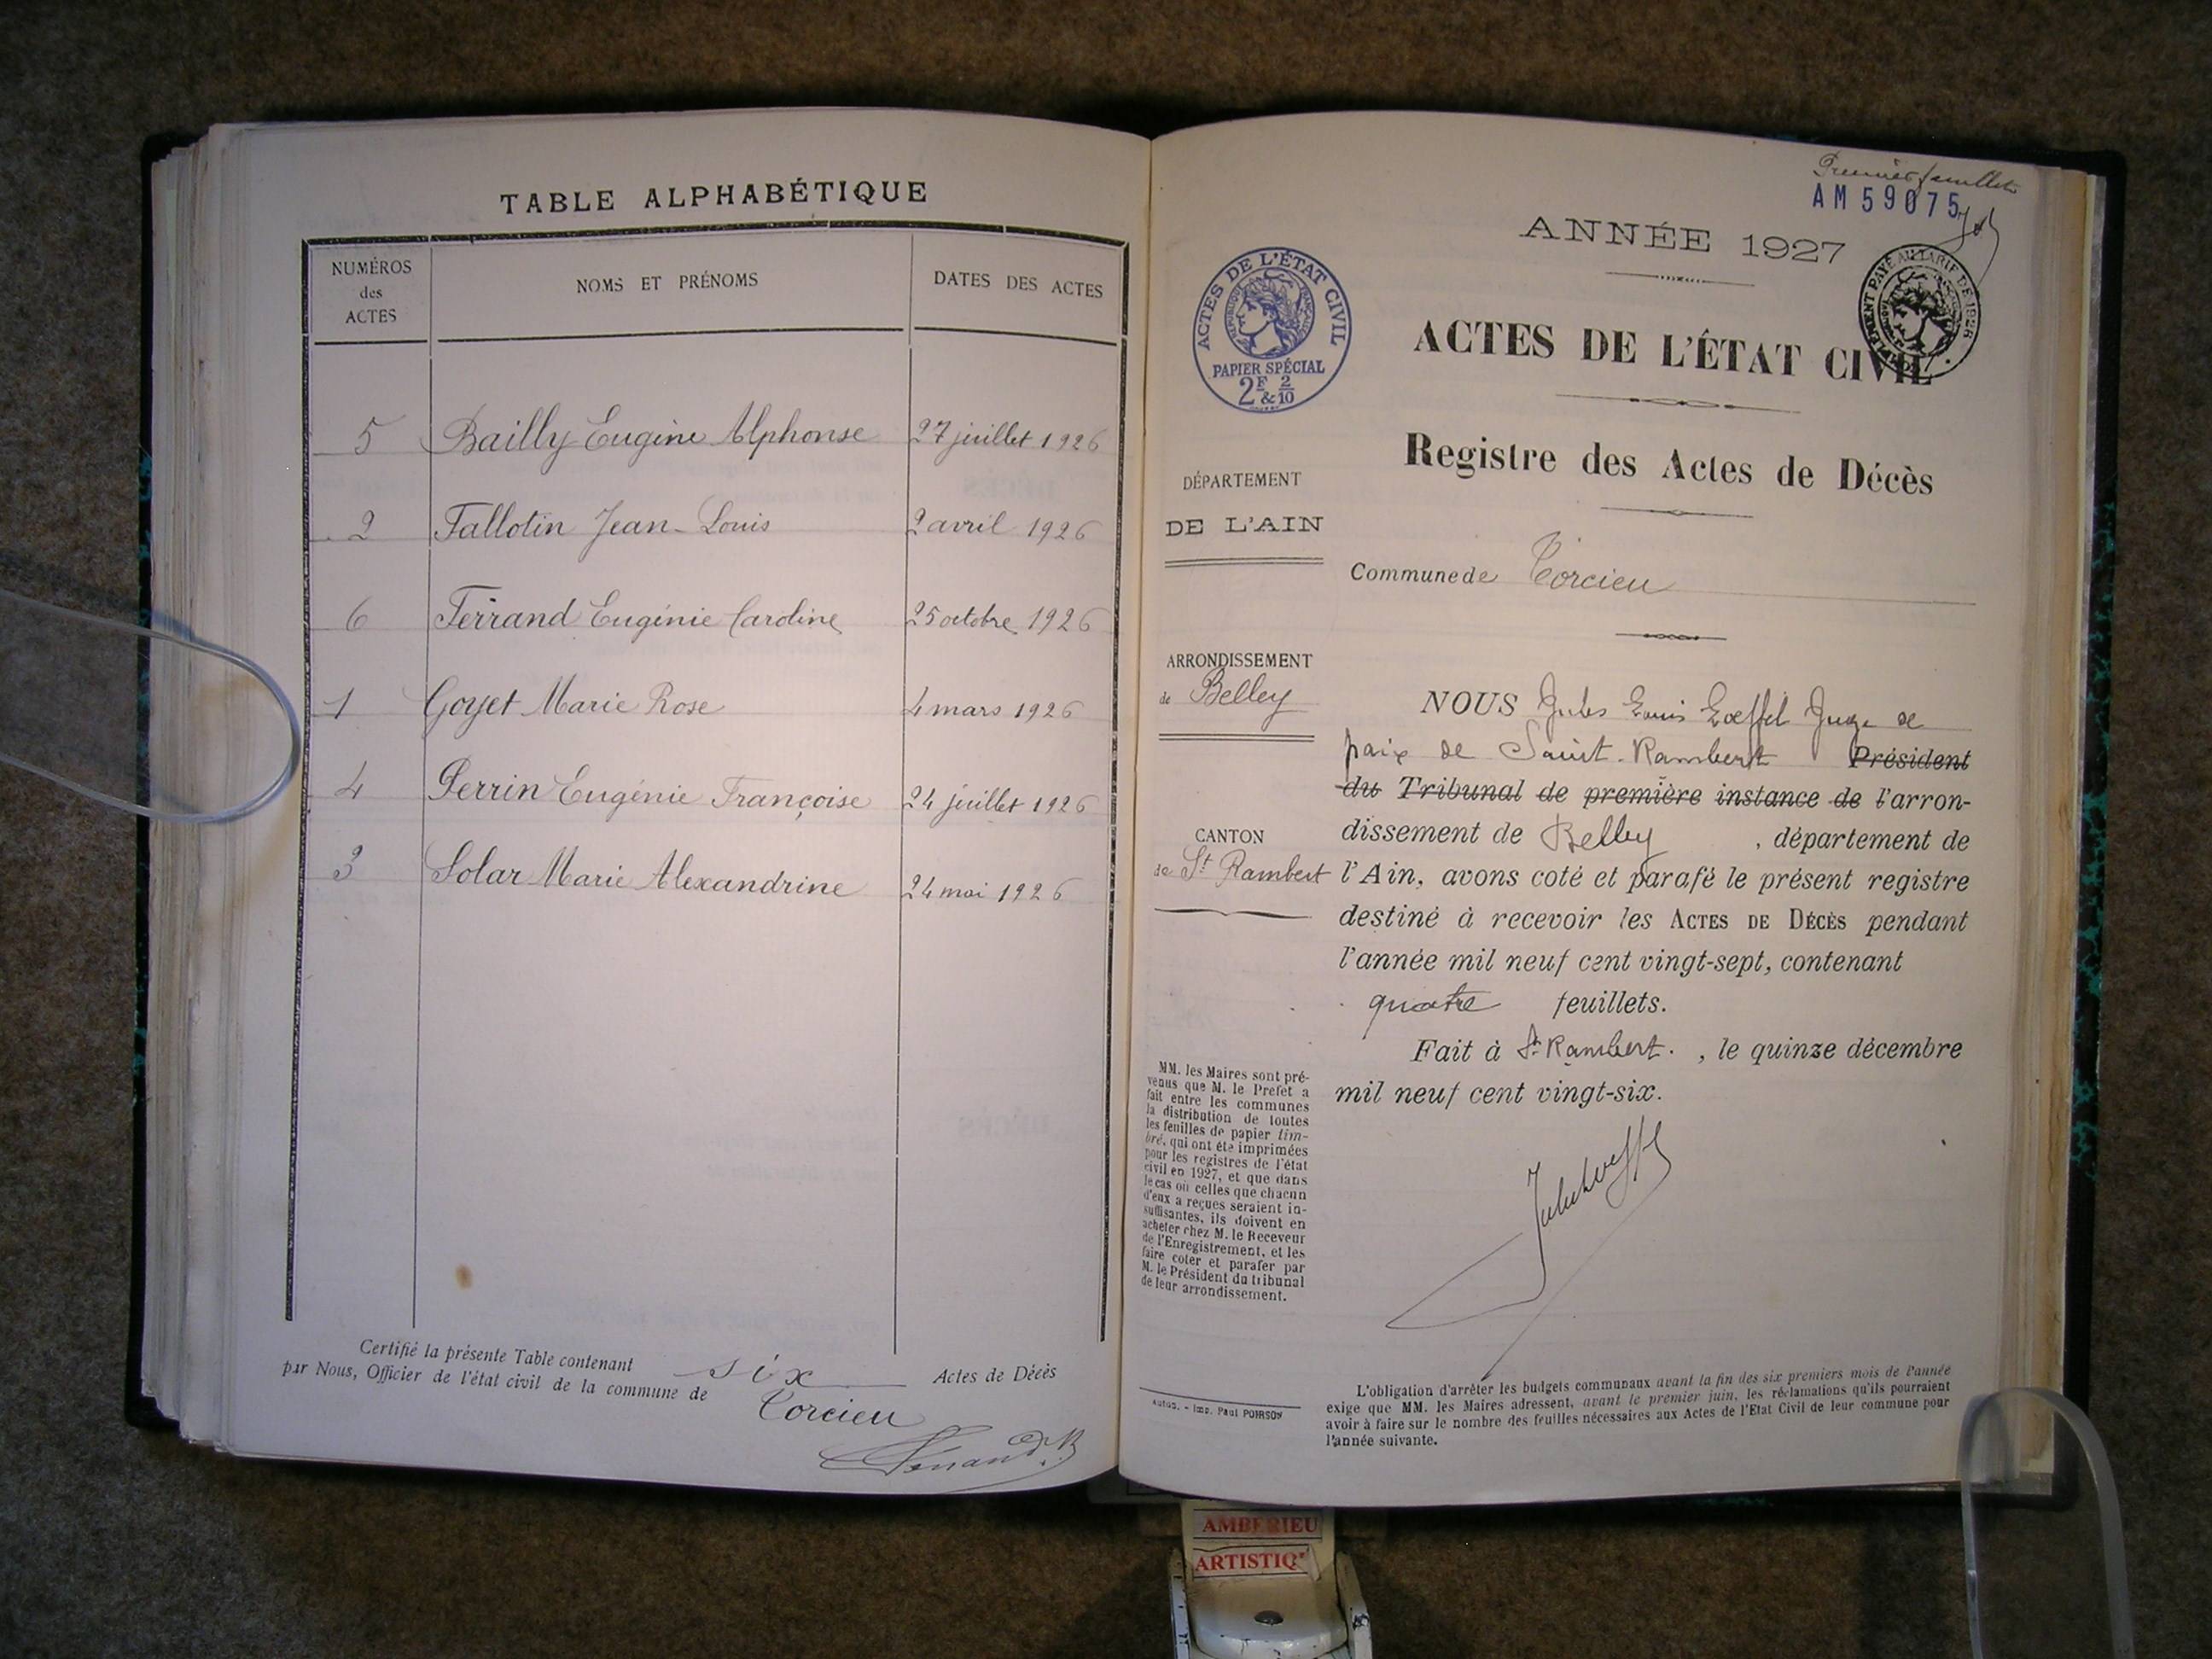 TABLE ALPHABÉTIQUE
NUMÉROS
des
ACTES
NOMS ET PRÉNOMS
DATES DES ACTES
5 Bailly Eugène Alphonse 27 juillet 1926
2 Fallotin Jean-Louis 2 avril 1926
6 Ferrand Eugénie Caroline 25 octobre 1926
1 Goyet Marie Rose 4 mars 1926
4 Perrin Eugénie Françoise 24 juillet 1926
3 Solar Marie Alexandrine 24 mai 1926
Certifié la présente Table contenant six Actes de Décès
par Nous, Officier de l'état civil de la commune de
Torcieu
Premier feuillet
AM 59075
ANNÉE 1927
ACTES DE L'ÉTAT CIVIL
RÉPUBLIQUE FRANÇAISE
PAPIER SPÉCIAL
2F & 2/10
ACTES DE L'ÉTAT CIVIL
Registre des Actes de Décès
DÉPARTEMENT
DE L'AIN
Commune de Torcieu
ARRONDISSEMENT
de Belley
CANTON
de St Rambert
NOUS Jules Louis Loeffel Juge de
paix de Saint-Rambert Président
du Tribunal de première instance de l'arron-
dissement de Belley, département de
l'Ain, avons coté et parafé le présent registre
destiné à recevoir les ACTES DE DÉCÈS pendant
l'année mil neuf cent vingt-sept, contenant
quatre feuillets.
Fait à St Rambert., le quinze décembre
mil neuf cent vingt-six.
MM. les Maires sont pré-
venus que M. le Préfet a
fait entre les communes
la distribution de toutes
les feuilles de papier tim-
bré, qui ont été imprimées
pour les registres de l'état
civil en 1927, et que dans
le cas où celles que chacun
d'eux a reçues seraient in-
suffisantes, ils doivent en
acheter chez M. le Receveur
de l'Enregistrement, et les
faire coter et parafer par
M. le Président du tribunal
de leur arrondissement.
Imp. Paul POIRSON
L'obligation d'arrêter les budgets communaux avant la fin des six premiers mois de l'année
exige que MM. les Maires adressent, avant le premier juin, les réclamations qu'ils pourraient
avoir à faire sur le nombre des feuilles nécessaires aux Actes de l'Etat Civil de leur commune pour
l'année suivante.
AMBERIEU
ARTISTIQ'